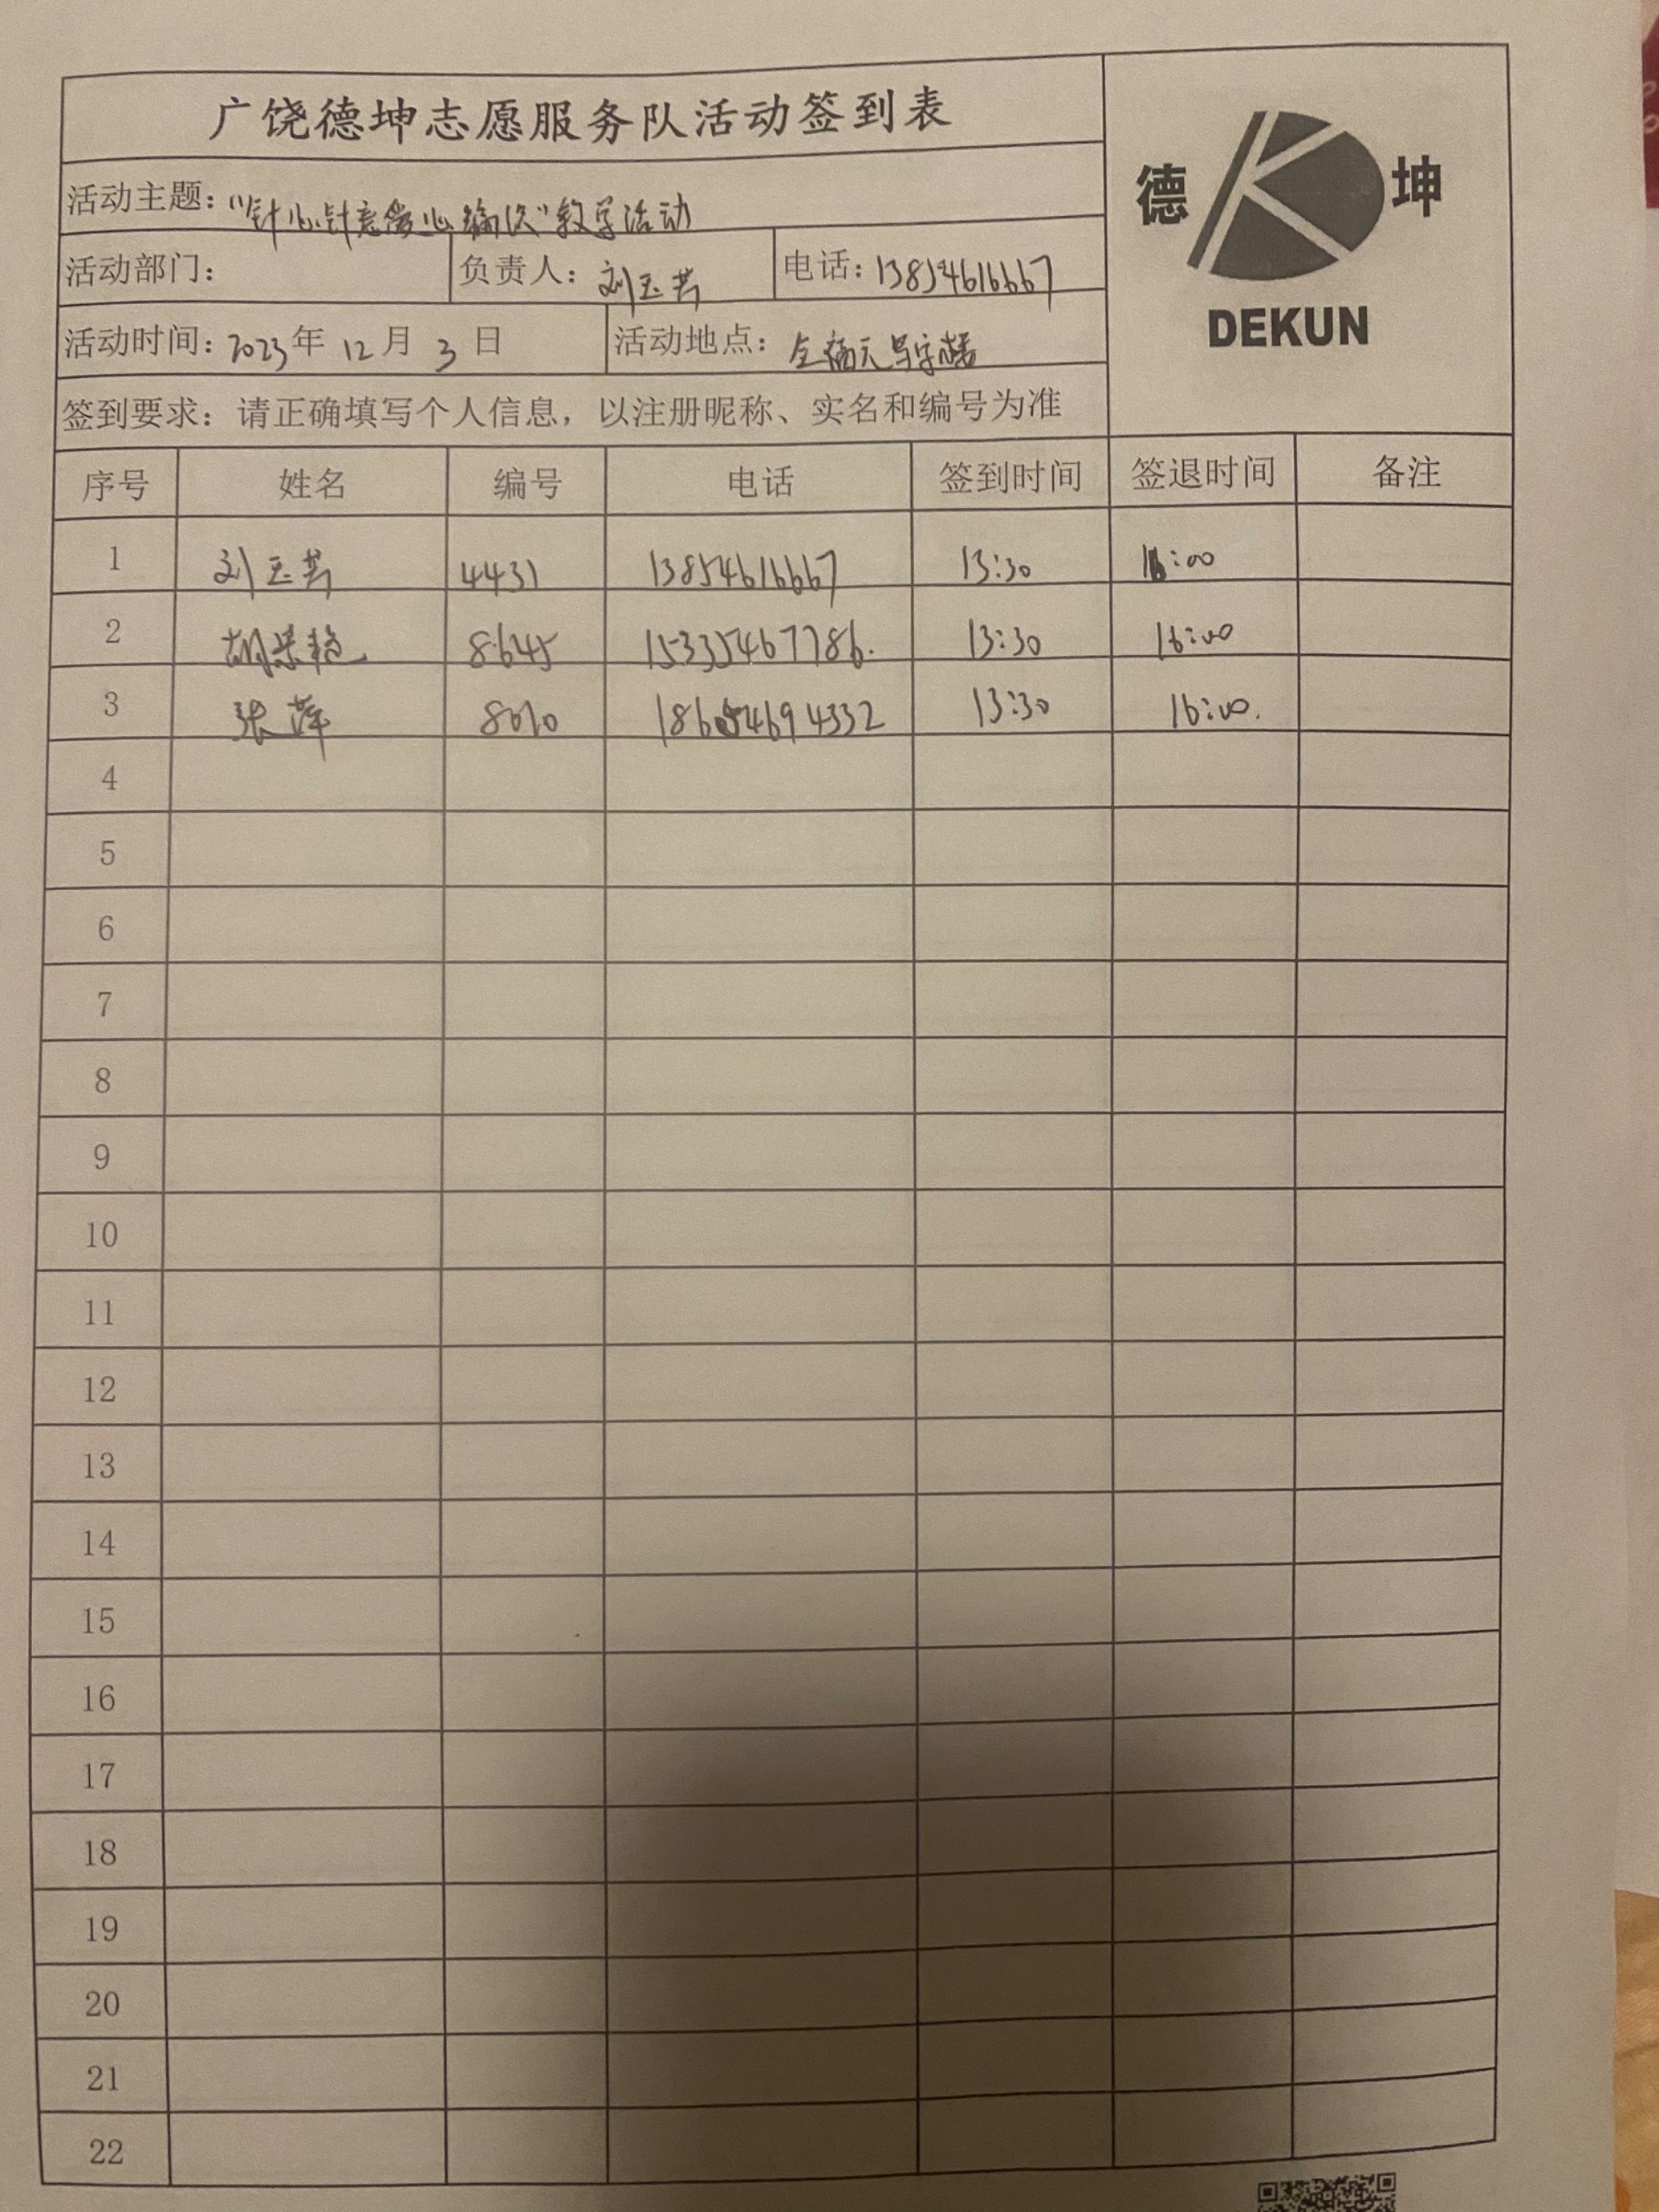 广饶德坤志愿服务队活动签到表
德 坤
DEKUN
活动主题："针心针意爱心编织"教学活动
活动部门： 负责人：刘玉芸 电话：13854616667
活动时间：2023年 12月 3日 活动地点：全福元写字楼
签到要求：请正确填写个人信息，以注册昵称、实名和编号为准
序号 姓名 编号 电话 签到时间 签退时间 备注
1 刘玉芸 4431 13854616667 13:30 16:00
2 胡 8645 15335467786. 13:30 16:00
3 张萍 8010 18605469 4332 13:30 16:00.
4
5
6
7
8
9
10
11
12
13
14
15
16
17
18
19
20
21
22